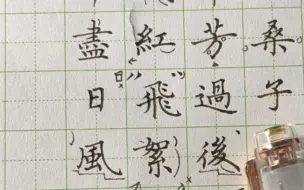 桑子
芳過後
紅飛絮
日
盡日風